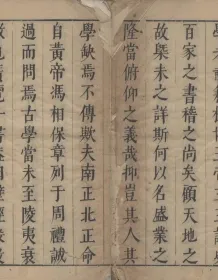 百家之書稽之尚矣顧天地之
故槩未之詳斯何以名盛業之
隆當俯仰之義哉抑豈其人其
學缺焉不傳歟夫南正北正命
自黃帝馮相保章列于周禮誠
過而問焉古學當未至陵夷衰